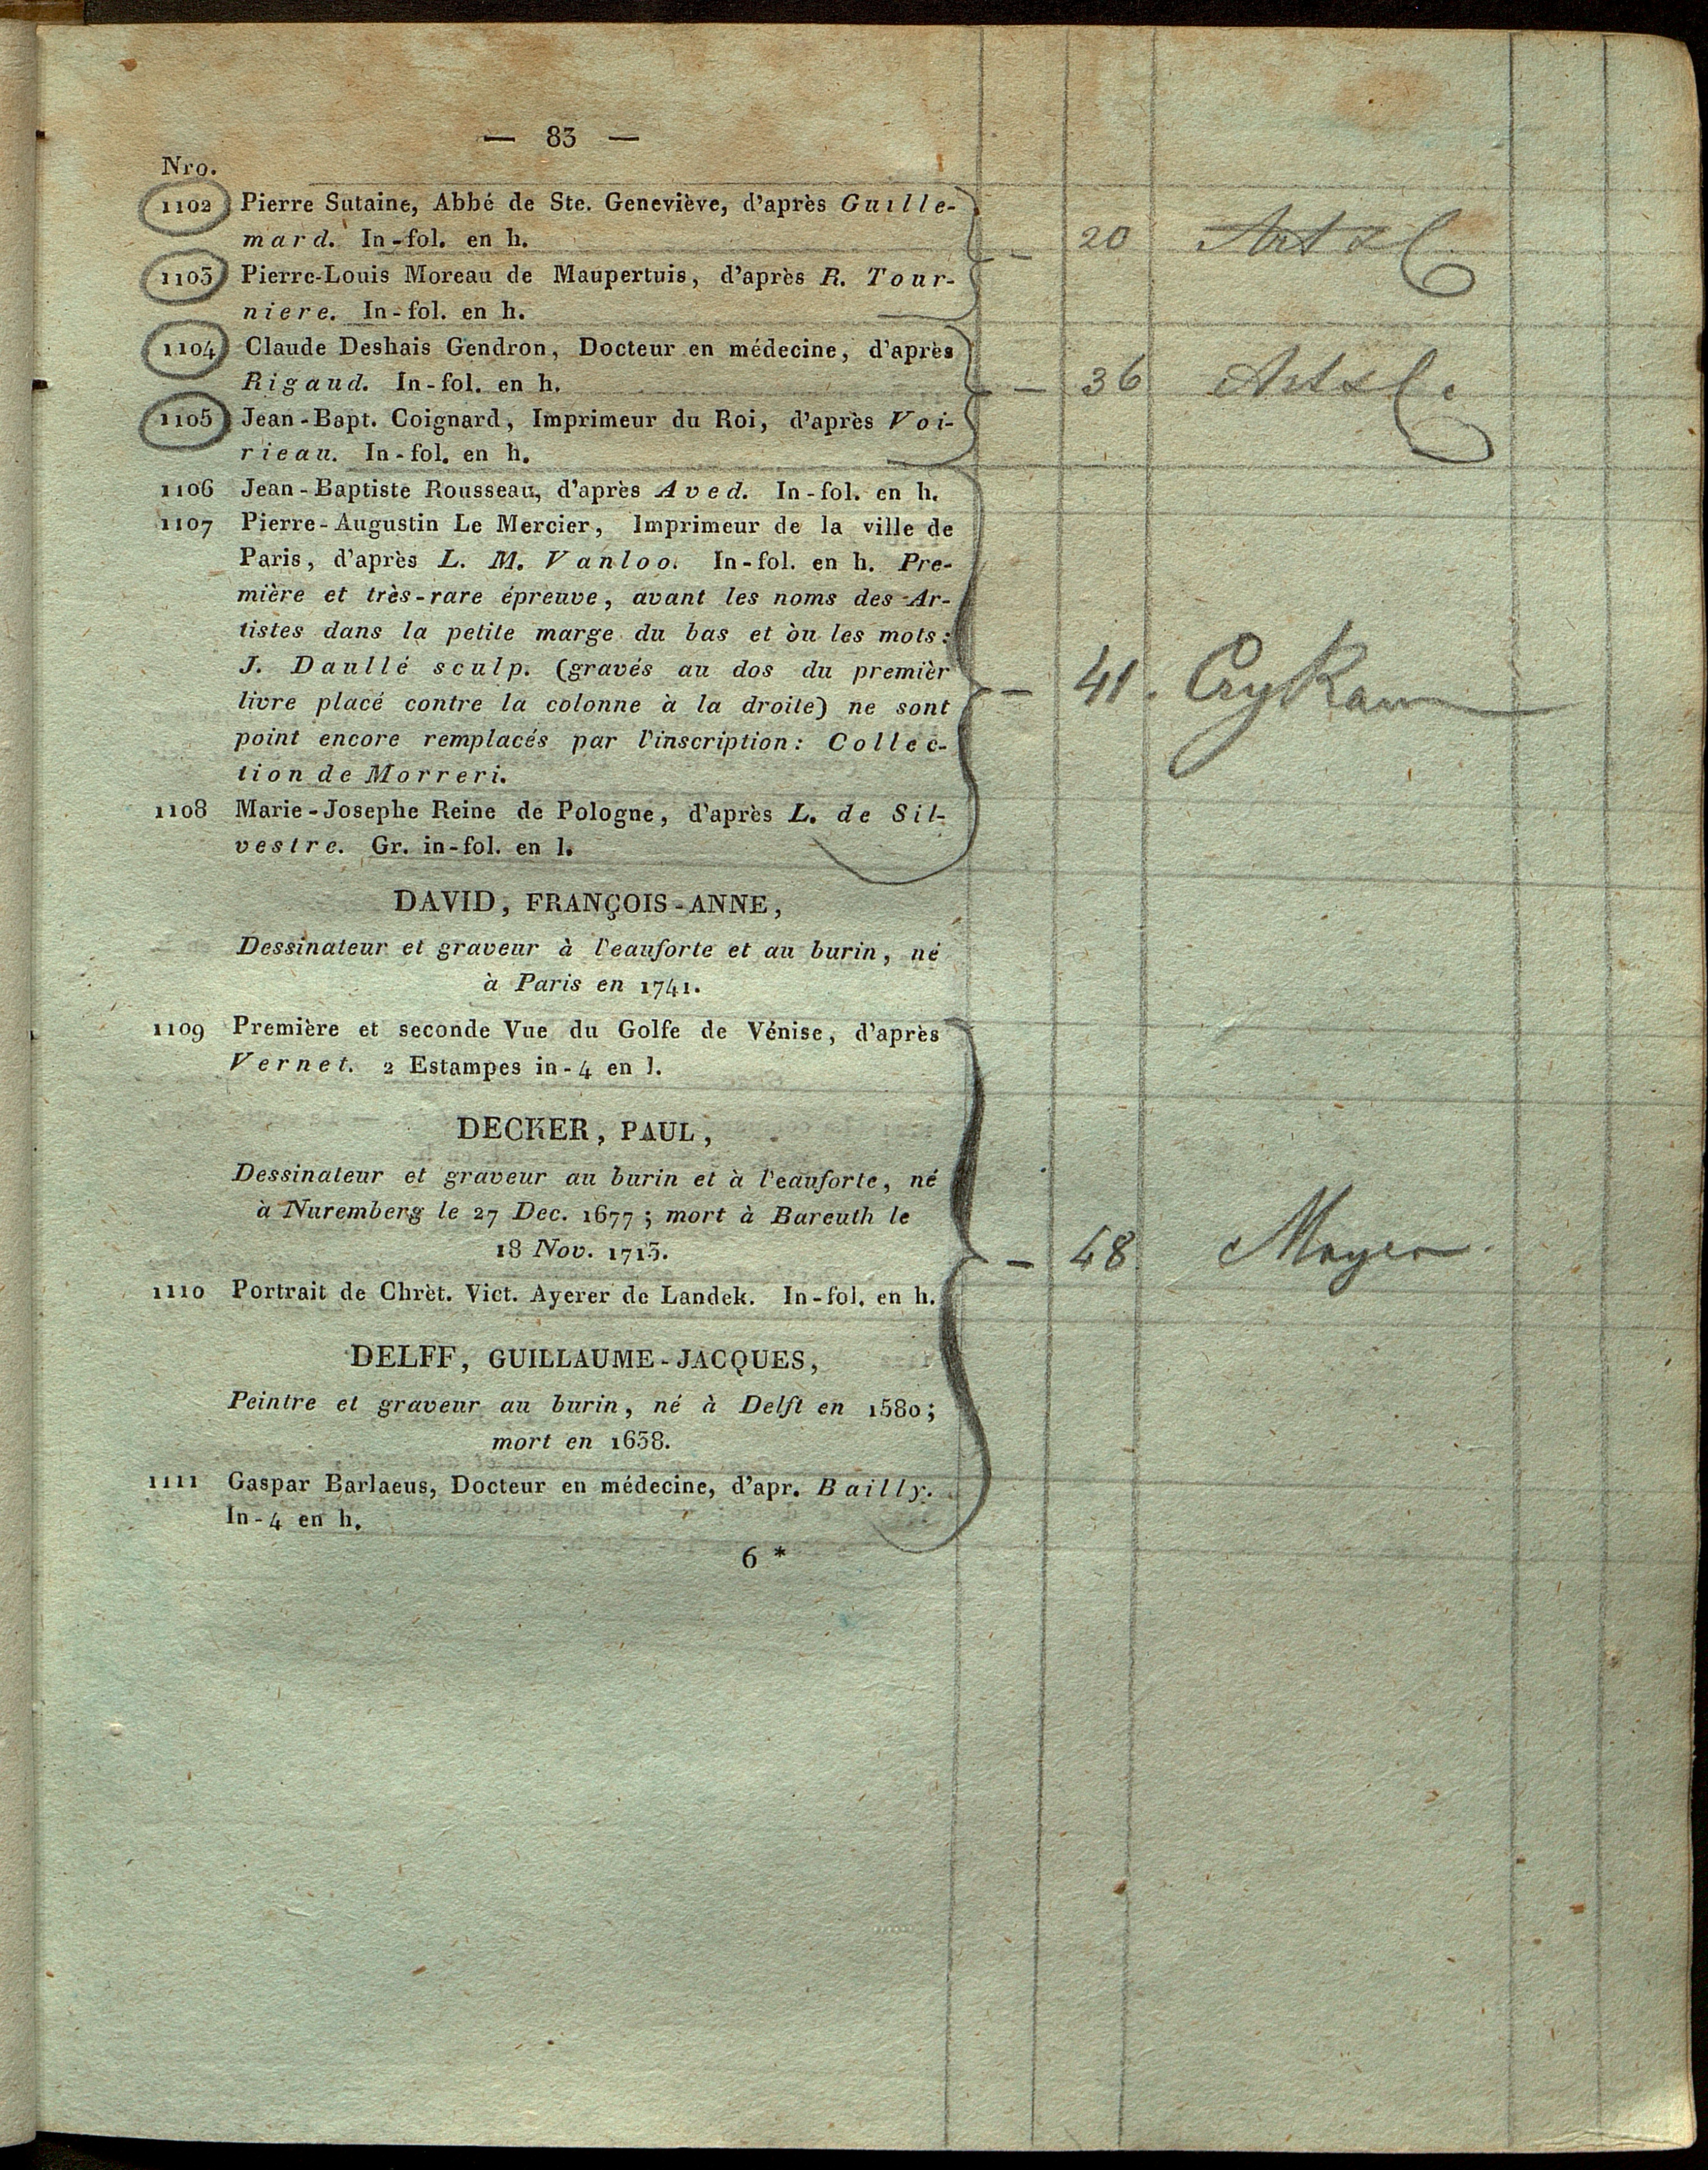 — 83 —
Nro.
1102 Pierre Sutaine, Abbé de Ste. Geneviève, d'après Guille-
mard. In-fol. en h.
— 20
1103 Pierre-Louis Moreau de Maupertuis, d'après R. Tour-
niere. In-fol. en h.
1104 Claude Deshais Gendron, Docteur en médecine, d'après
Rigaud. In-fol. en h.
— 36
1105 Jean-Bapt. Coignard, Imprimeur du Roi, d'après Voi-
rieau. In-fol. en h.
1106 Jean-Baptiste Rousseau, d'après Aved. In-fol. en h.
1107 Pierre-Augustin Le Mercier, Imprimeur de la ville de
Paris, d'après L. M. Vanloo. In-fol. en h. Pre-
mière et très-rare épreuve, avant les noms des Ar-
tistes dans la petite marge du bas et òu les mots:
J. Daullé sculp. (gravés au dos du premièr
livre placé contre la colonne à la droite) ne sont
— 41.
point encore remplacés par l'inscription: Collec-
tion de Morreri.
1108 Marie-Josephe Reine de Pologne, d'après L. de Sil-
vestre. Gr. in-fol. en l.
DAVID, FRANÇOIS-ANNE,
Dessinateur et graveur à l'eauforte et au burin, né
à Paris en 1741.
1109 Première et seconde Vue du Golfe de Vénise, d'après
Vernet. 2 Estampes in-4 en l.
DECKER, PAUL,
Dessinateur et graveur au burin et à l'eauforte, né
à Nuremberg le 27 Dec. 1677; mort à Bareuth le
18 Nov. 1713.
— 48 Mayer
1110 Portrait de Chrèt. Vict. Ayerer de Landek. In-fol. en h.
DELFF, GUILLAUME-JACQUES,
Peintre et graveur au burin, né à Delft en 1580;
mort en 1638.
1111 Gaspar Barlaeus, Docteur en médecine, d'apr. Bailly.
In-4 en h.
6 *